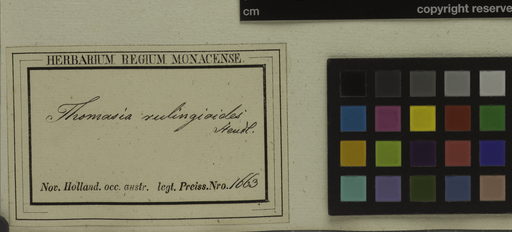 cm
copyright reserve
HERBARIUM REGIUM MONACENSE
Thomasia rulingioides
Steud.
Nov. Holland. occ. austr. legt. Preiss. Nro. 1663